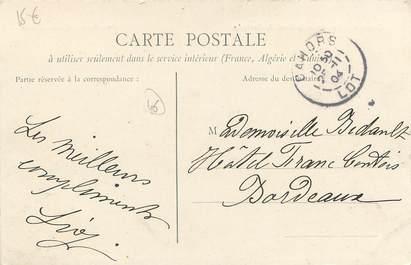 15€
CARTE POSTALE
à utiliser seulement dans le service intérieur (France, Algérie et
Partie réservée à la correspondance :
Adresse du
CAHORS
LOT
15
Les meilleurs
compliments
Mademoiselle Bedault
Hôtel Franc Comtois
Bordeaux